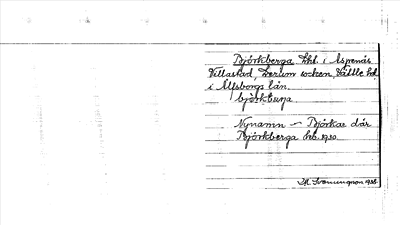 Björkberga, hht. i Aspenäs
Villastad, Lerum socken, Vättle hd
i Älfsborgs län.
björkbärja
Nynamn – Björkar där
Björkberga htr. 1920.
M. Svenungson 1938